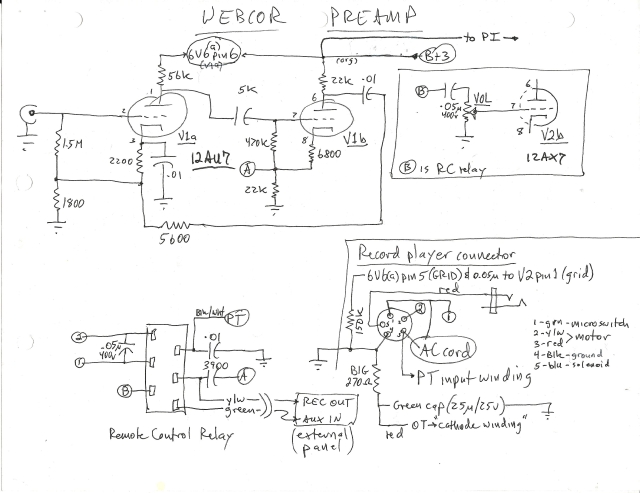 WEBCOR PREAMP
to PI
6V6(a) pin 6
B+3
(org)
56K
22K
.01
5K
1
2
3
V1a
12AU7
6
7
8
V1b
470K
6800
1.5M
2200
.01
A
22K
1800
5600
B
.05µ
400V
VOL
6
7
8
V2b
12AX7
B is RC relay
Record player connector
6V6(G) pin 5 (GRID) & 0.05µ to V2 pin 1 (grid)
red
150K
AC cord
PT input winding
BIG
270Ω
Green cap (25µ/25V)
red OT "cathode winding"
1-grn-microswitch
2-ylw > motor
3-red
4-Blk-ground
5-blu-solenoid
Blk/Wht
PT
2
.05µ
400V
1
.01
3900
A
B
ylw
green
REC OUT
AUX IN
(external panel)
Remote Control Relay